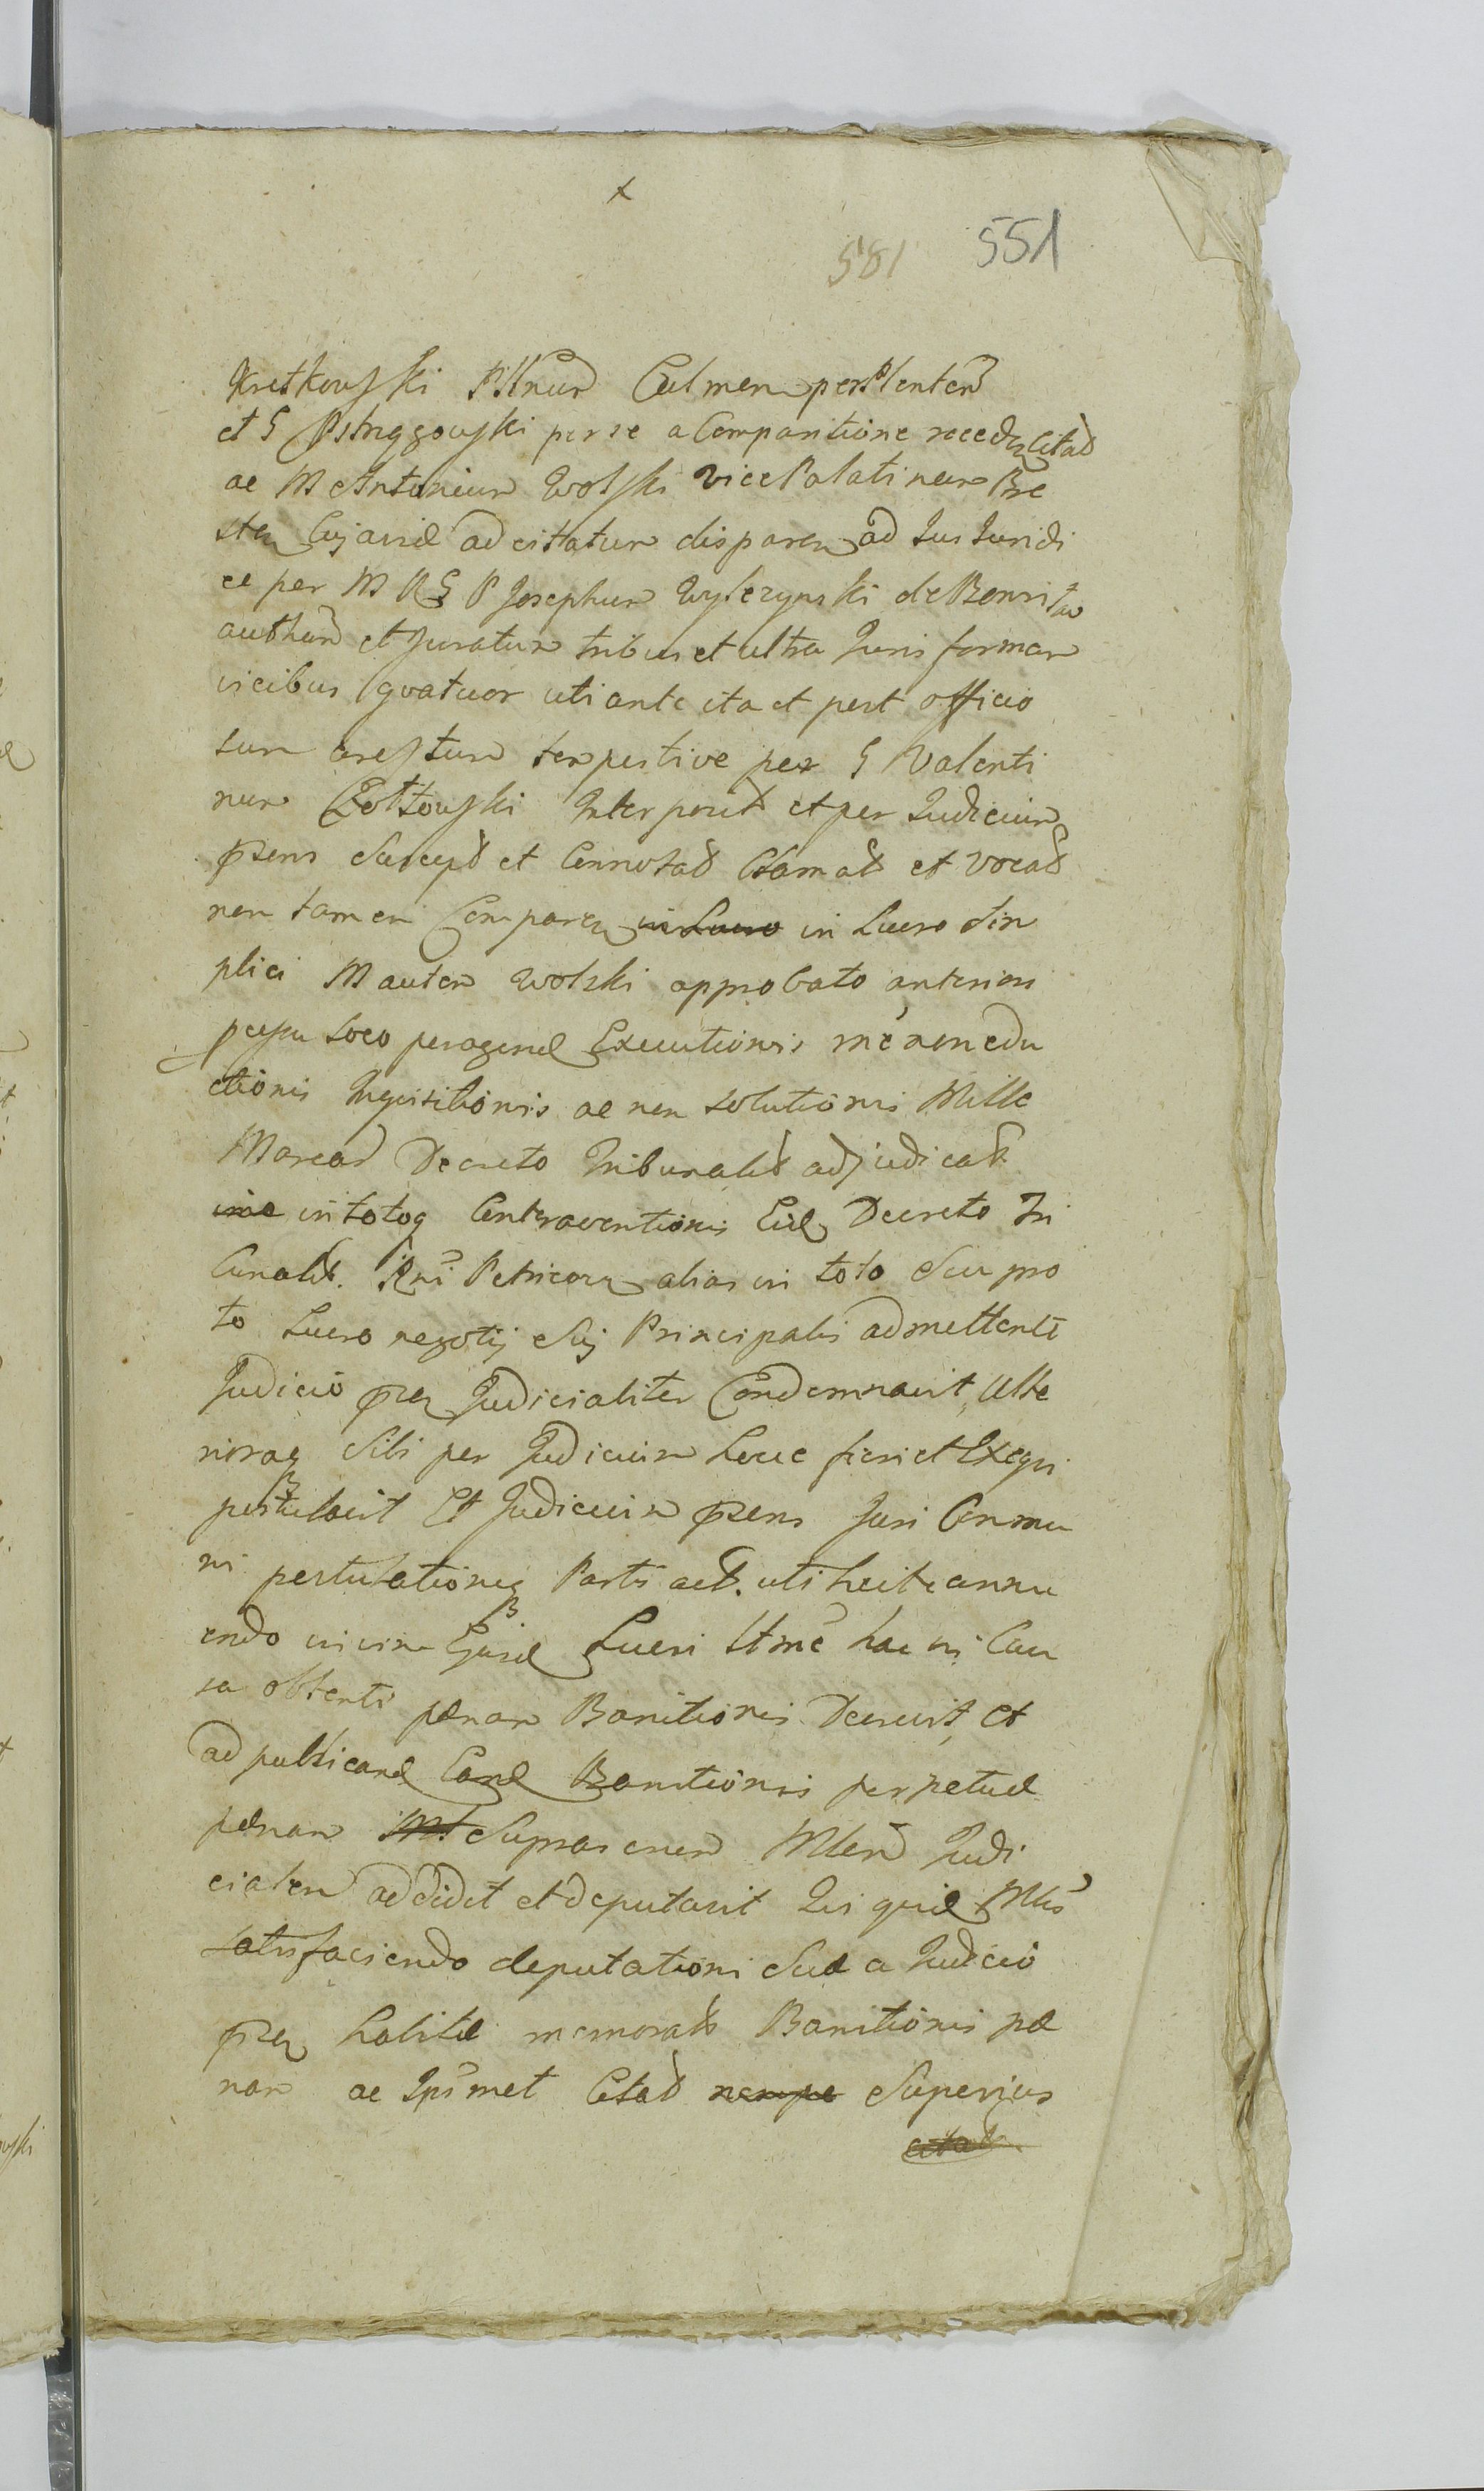 x
581 551
Kretkowski Pllnum Culmen per Plenten
et G Pstrągowski per se a Comparitione reced Citat
ac M Antonium Wolski vice Palatinum Bre
sten Cujaviæ ad citatum disparen ad Jus Juridi
ce per M R G P Josephum Wylczynski de
authen et Juratum tribus et ultra Juris formam
vicibus quatuor uti ante ita et post officio
sum arestum tempestive per G Valenti
num Żółtowski Interposit et per Judicium
præsens Suscept et Connotat Clamat et vocat
non tamen Comparen in Lucro in Lucro Sim
plici M autem Wolski approbato anteriori
passu loco peragend Executionis mće non edu
ctionis Inquisitionis ac non solutionis Mille
Marcar Decreto Tribunalit adjudicat
in totoq Contraventionis Eid Decreto Tri
bunalit. Rni Petricovien alias in toto Seu pro
to Lucro negotij Suj Principalis admittente
Judicio præsen Judicialiter Condemnavit, Ulte
rioraq Sibi per Judicium hocce fieri et Exequi
postulavit Et Judicium præsens Juri Commu
ni postulationiq Partis act. uti licite annu
endo in vim Ejusd Lucri Ittmě hac in Cau
sa obtenti pænam Banitionis Decrevit, et
ad publicand Eand Banitionis perpetuæ
pænam Suprascriptum Mlem Judi
cialem addidit et deputavit Qui quid Mlis
satisfaciendo deputationi Suæ a Judicio
præsen habitæ memorat Banitionis pæ
nam ac Ipsmet Citat nempe Superius
citat